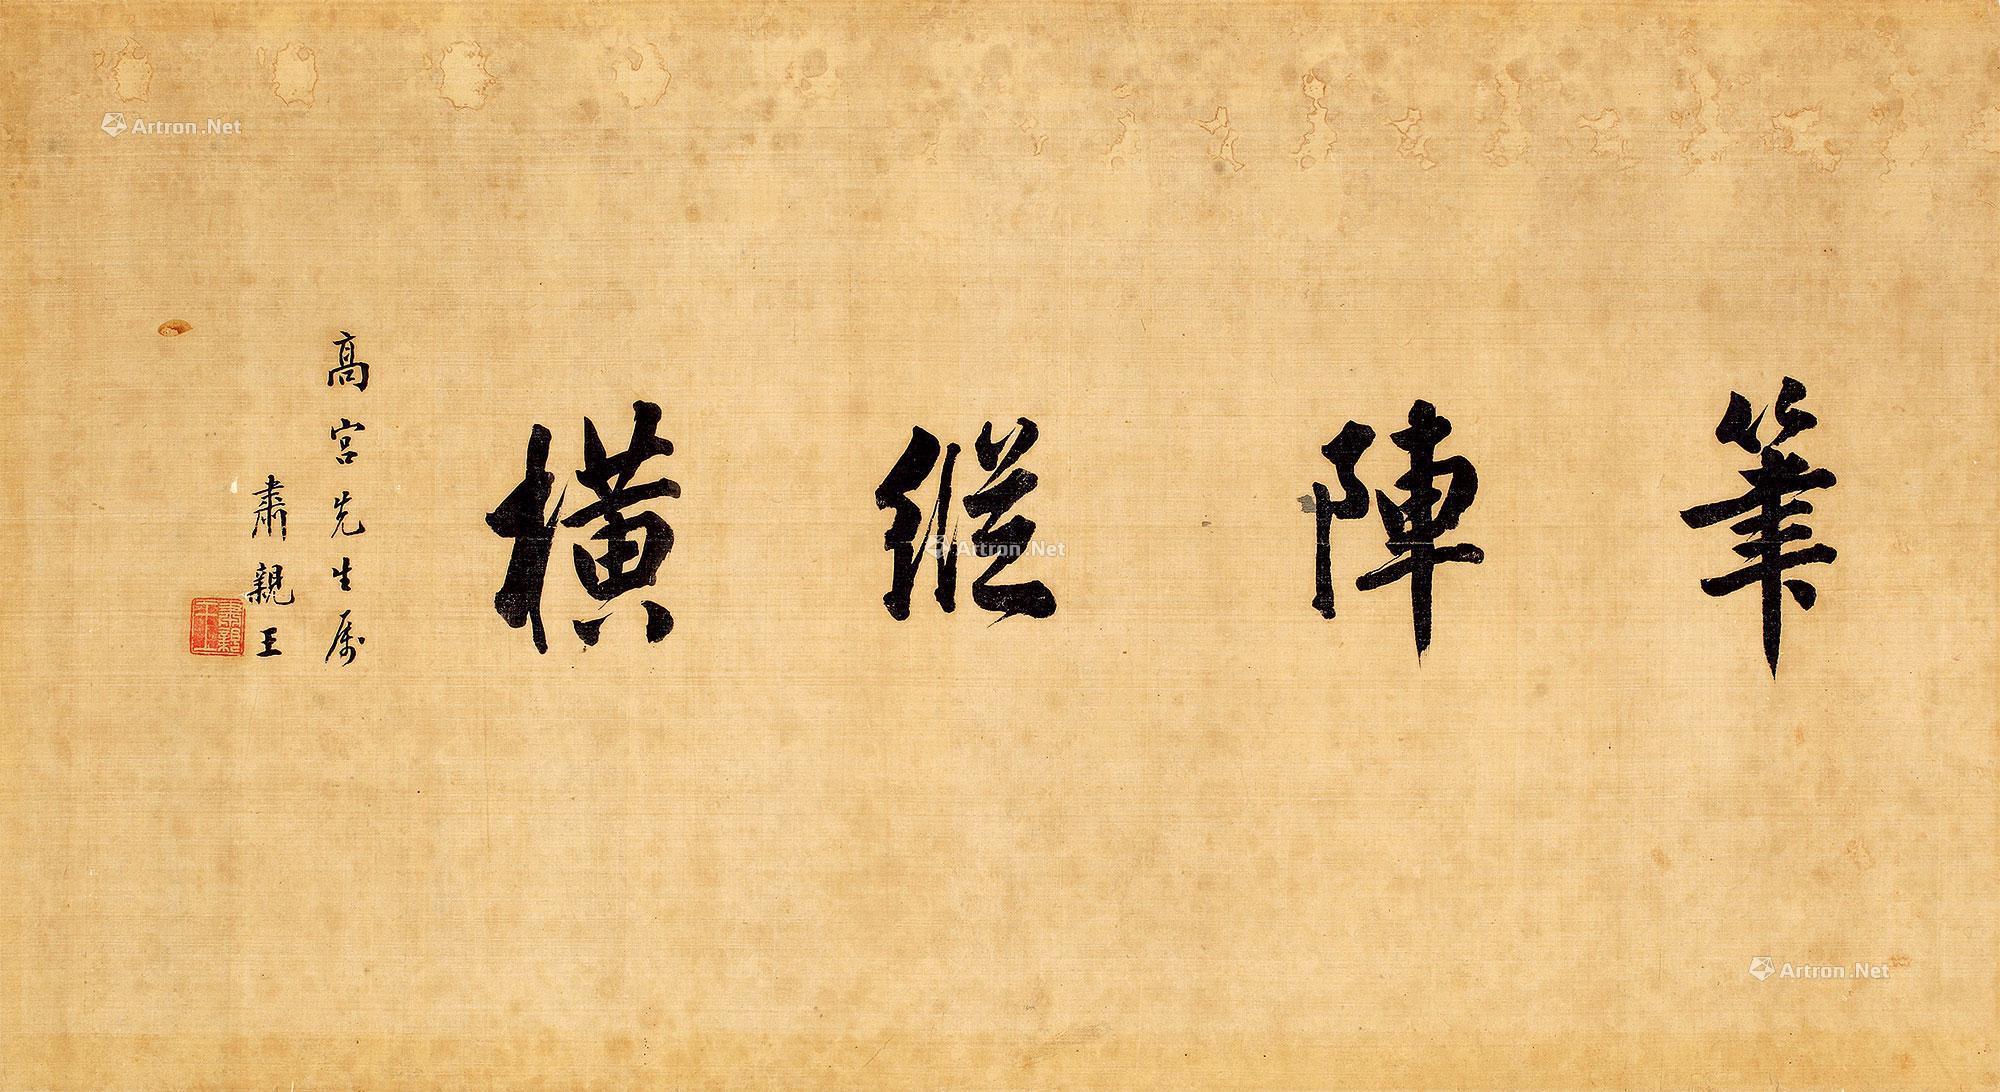 筆陣縱橫
高宮先生屬
肅親王
肅親王
Artron.Net
Artron.Net
Artron.Net